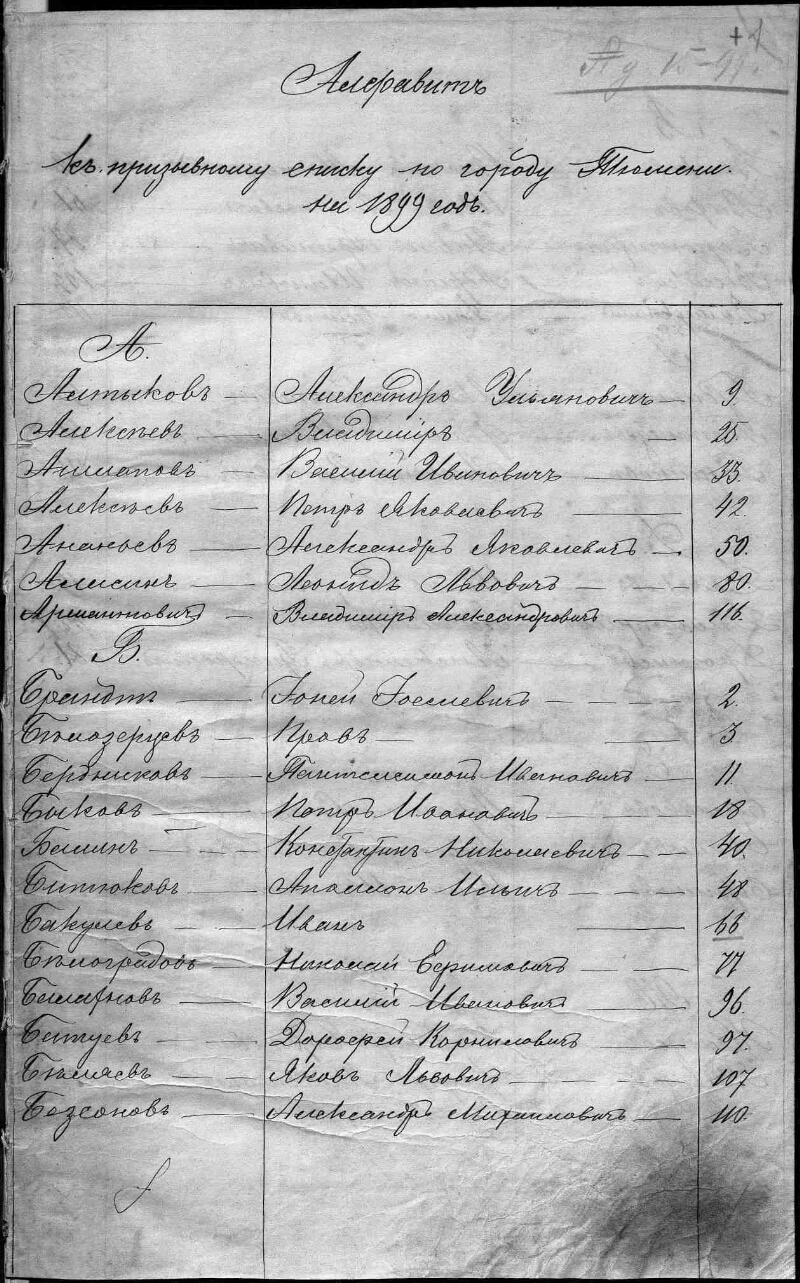 +1
15-91.
Алфавитъ
къ призывному списку по городу Тюмени.
на 1899 годъ.
А.
Алтыковъ — Александръ Ульяновичъ — 9
Алексѣевъ — Владиміръ — 25
Ашлаповъ — Василій Ивановичъ — 33
Алексѣевъ — Петръ Яковлевичъ — 42
Ананьевъ — Александръ Яковлевичъ — 50.
Алисинъ — Леонидъ Львовичъ — 80
Владиміръ Александровичъ — 116.
Б.
Брандтъ — Іоней Іоселевичъ — 2.
Бѣлозерцевъ — Провъ — 3
Бердниковъ — Пантелеимонъ Ивановичъ — 11
Быковъ — Петръ Ивановичъ — 18
Балинъ — Константинъ Николаевичъ — 40.
Битюковъ — Аполлонъ Ильичъ — 48
Бакулевъ — Иванъ — 66
Бѣлоградовъ — Николай Ефимовичъ — 77
Василій Ивановичъ — 96.
Батуевъ — Дорофей Корниловичъ — 97.
Бѣляевъ — Яковъ Львовичъ — 107
Безсоновъ — Александръ Михаиловичъ — 110.